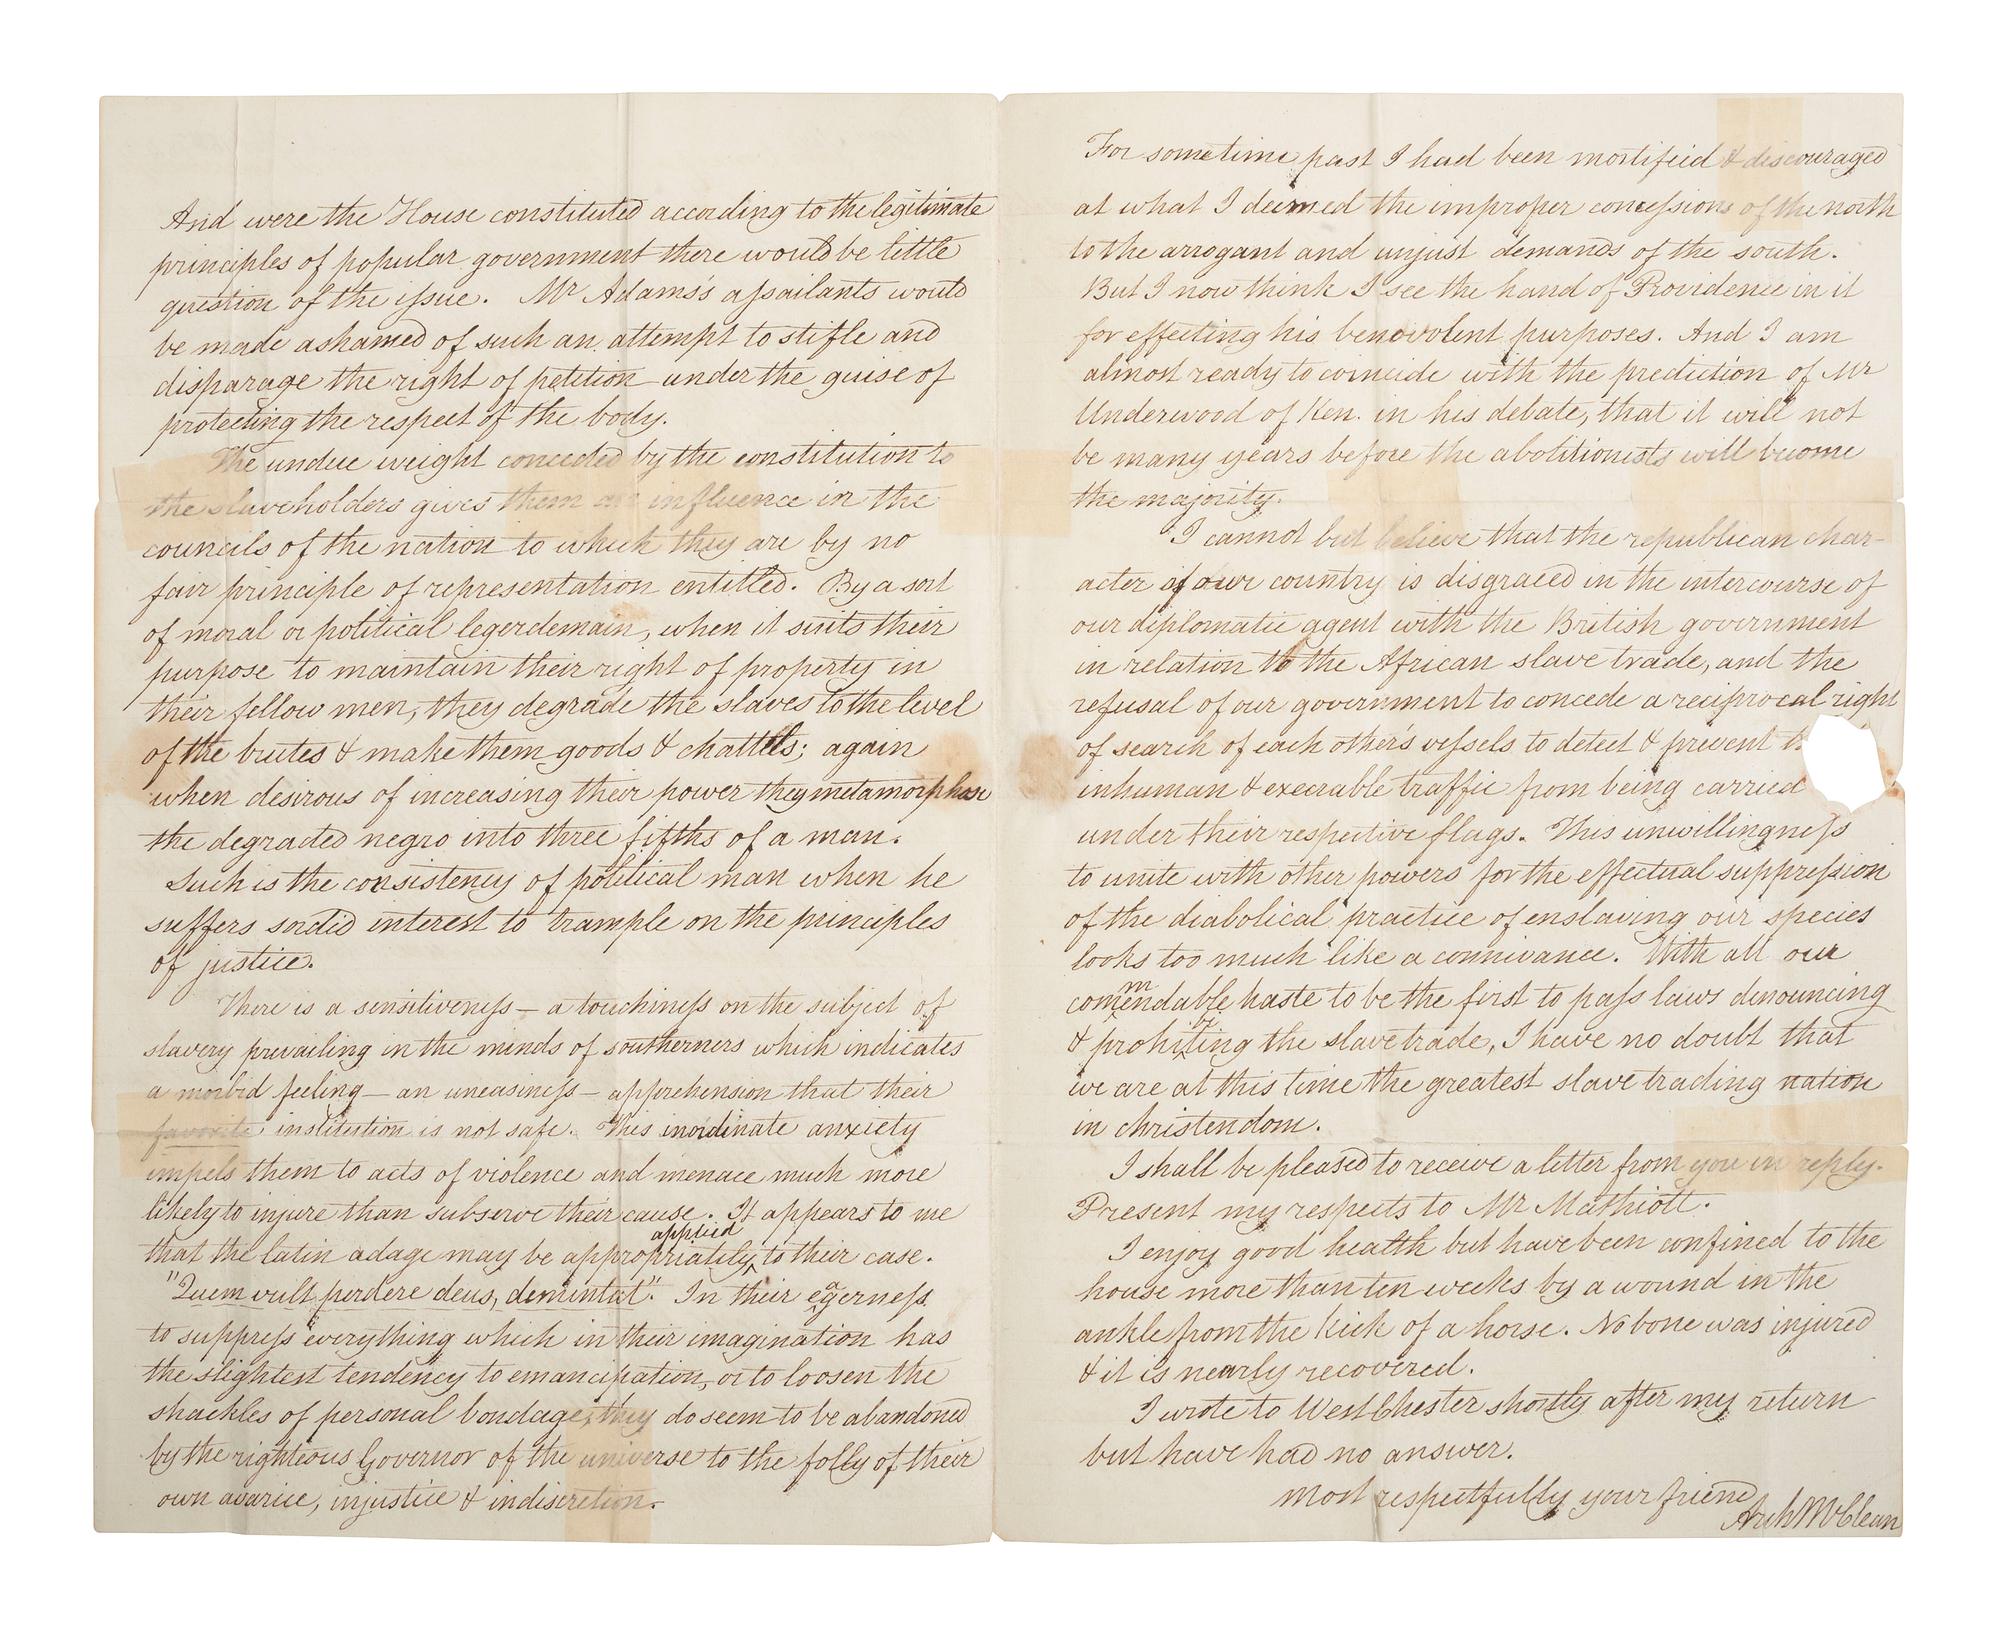 And were the House constituted according to the legitimate
principles of popular government there would be little
question of the issue. Mr Adams's assailants would
be made ashamed of such an attempt to stifle and
disparage the right of petition under the guise of
protecting the respect of the body.
The undue weight conceded by the constitution to
the slaveholders gives them an influence in the
councils of the nation to which they are by no
fair principle of representation entitled. By a sort
of moral or political legerdemain, when it suits their
purpose to maintain their right of property in
their fellow men, they degrade the slaves to the level
of the brutes & make them goods & chattels; again
when desirous of increasing their power they metamorphose
the degraded negro into three fifths of a man.
Such is the consistency of political man when he
suffers sordid interest to trample on the principles
of justice.
There is a sensitiveness — a touchiness on the subject of
slavery prevailing in the minds of southerners which indicates
a morbid feeling — an uneasiness — apprehension that their
favorite institution is not safe. This inordinate anxiety
impels them to acts of violence and menace much more
likely to injure than subserve their cause. It appears to me
that the latin adage may be appropriately applied to their case.
"Quem vult perdere deus, demintat". In their eagerness
to suppress everything which in their imagination has
the slightest tendency to emancipation, or to loosen the
shackles of personal bondage, they do seem to be abandoned
by the righteous Governor of the universe to the folly of their
own avarice, injustice & indiscretion.
For sometime past I had been mortifeid & discouraged
at what I deemed the improper concessions of the north
to the arrogant and unjust demands of the south.
But I now think I see the hand of Providence in it
for effecting his benovolent purposes. And I am
almost ready to coincide with the prediction of Mr
Underwood of Ken. in his debate, that it will not
be many years before the abolitionists will become
the majority.
I cannot but believe that the republican char-
acter of our country is disgraced in the intercourse of
our diplomatic agent with the British government
in relation to the African slave trade, and the
refusal of our government to concede a reciprocal right
of search of each other's vessels to detect & prevent
inhuman & execrable traffic from being carried
under their respective flags. This unwillingness
to unite with other powers for the effectual suppression
of the diabolical practice of enslaving our species
looks too much like a connivance. With all our
commendable haste to be the first to pass laws denouncing
& prohibiting the slave trade, I have no doubt that
we are at this time the greatest slave trading nation
in christendom.
I shall be pleased to receive a letter from you in reply.
Present my respects to Mr Mathiott.
I enjoy good health but have been confined to the
house more than ten weeks by a wound in the
ankle from the kick of a horse. No bone was injured
& it is nearly recovered.
I wrote to West Chester shortly after my return
but have had no answer.
Most respectfully your friend
Arch McClean